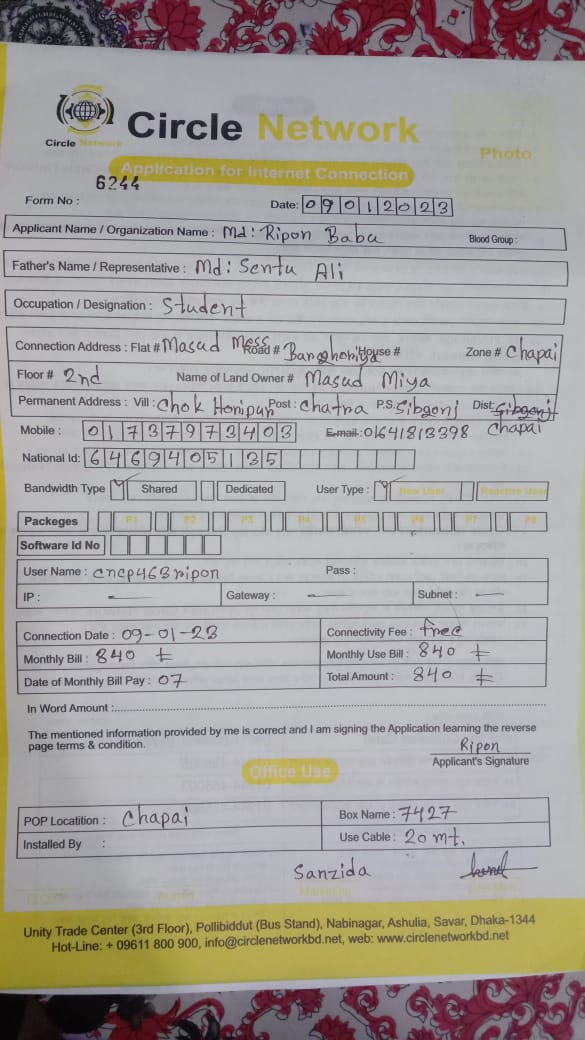 Circle Network
Circle Network
Photo
Application for Internet Connection
6244
Form No :
Date: 09012023
Applicant Name / Organization Name : Md: Ripon Babu Blood Group :
Father's Name / Representative : Md: Sentu Ali
Occupation / Designation : Student
Connection Address : Flat # Masud Mess Road # House # Zone # Chapai
Floor # 2nd Name of Land Owner # Masud Miya
Permanent Address : Vill : Chok Honipur Post : Chatra P.S. Sibgonj Dist: Sibgonj
Mobile : 01737973403 E-mail : 01641813398 Chapai
National Id: 6469405135
Bandwidth Type Shared Dedicated User Type : New User Reactive User
Packeges P1 P2 P3 P4 P5 P6 P7 P8
Software Id No
User Name : cncp463ripon Pass :
IP : — Gateway : — Subnet : —
Connection Date : 09-01-23 Connectivity Fee : free
Monthly Bill : 840 Monthly Use Bill : 840
Date of Monthly Bill Pay : 07 Total Amount : 840
In Word Amount :
The mentioned information provided by me is correct and I am signing the Application learning the reverse
page terms & condition.
Ripon
Applicant's Signature
Office Use
POP Locatition : Chapai Box Name : 7427
Installed By : Use Cable : 20 mt.
Sanzida
Marketing
Unity Trade Center (3rd Floor), Pollibiddut (Bus Stand), Nabinagar, Ashulia, Savar, Dhaka-1344
Hot-Line: + 09611 800 900, info@circlenetworkbd.net, web: www.circlenetworkbd.net